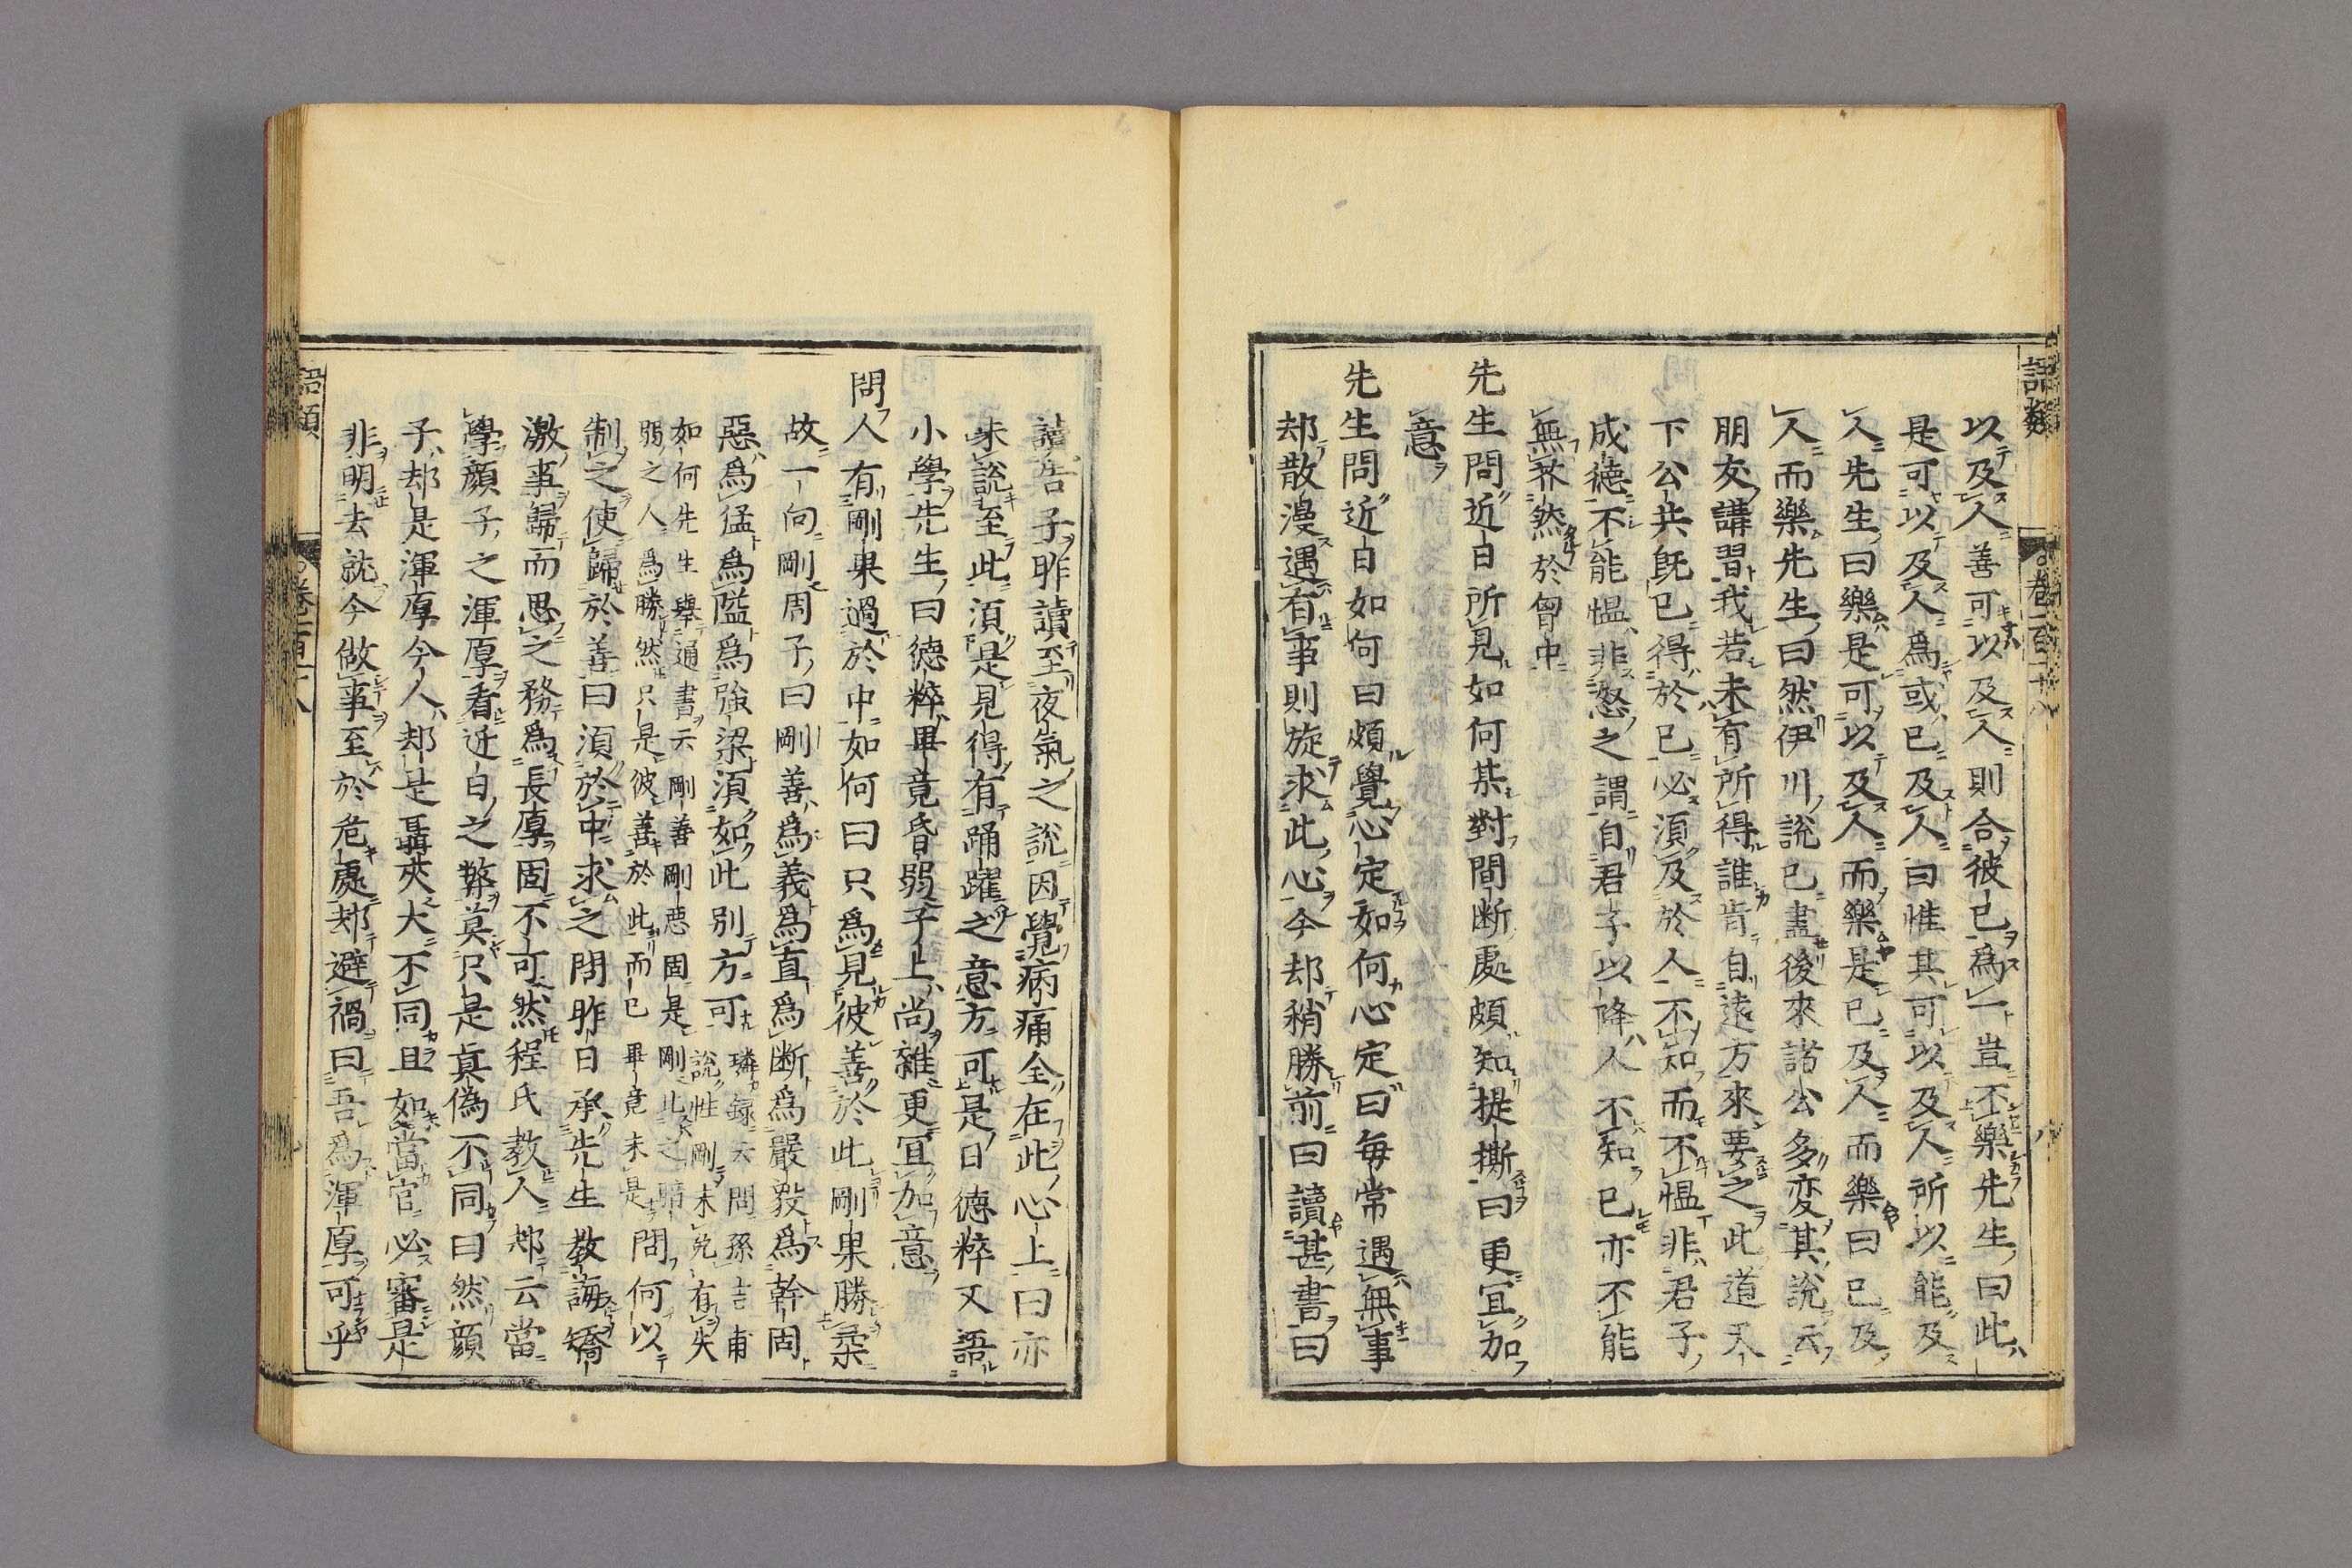 語類
卷一百十八
以及人善可以及人則合彼已爲一豈不樂先生曰此
是可以及人爲或已及人曰惟其可以及人所以能及
人先生曰樂是可以及人而樂是已及人而樂曰已及
人而樂先生曰然伊川說已盡後來諸公多変其說云
朋友講習我若未有所得誰肯自遠方來要之此道天
下公共旣已得於已必須及於人不知而不慍非君子
成德不能慍非怒之謂自君子以降人不知已亦不能
無芥然於曾中
先生問近日所見如何某對間断處頗知提撕曰更冝加
意
先生問近日如何曰頗覺心定如何心定曰每常遇無事
却散漫遇有事則旋求此心今却稍勝前曰讀甚書曰
讀告子昨讀至夜氣之說因覺病痛全在此心上曰亦
未說至此須是見得有踊躍之意方可是日德粹又語
小學先生曰德粹畢竟昏弱子上尚雜更冝加意
問人有剛果過於中如何曰只爲見彼善於此剛果勝柔
故一向剛周子曰剛善爲義爲直爲断爲嚴毅爲幹固
惡爲猛爲隘爲強梁須如此別方可璘録云問孫吉甫
說性剛未免有失
如何先生舉通書云剛善剛惡固是剛比之暗
弱之人爲勝然只是彼善於此而已畢竟未是問何以
制之使歸於善曰須於中求之問昨日承先生教誨矯
激事歸而思之務爲長厚固不可然程氏教人却云當
學顔子之渾厚看近日之弊莫只是真偽不同曰然顔
子却是渾厚今人却是聶夾大不同且如當官必審是
非明去就今做事至於危處却避禍曰吾爲渾厚可乎
語類
卷一百十八